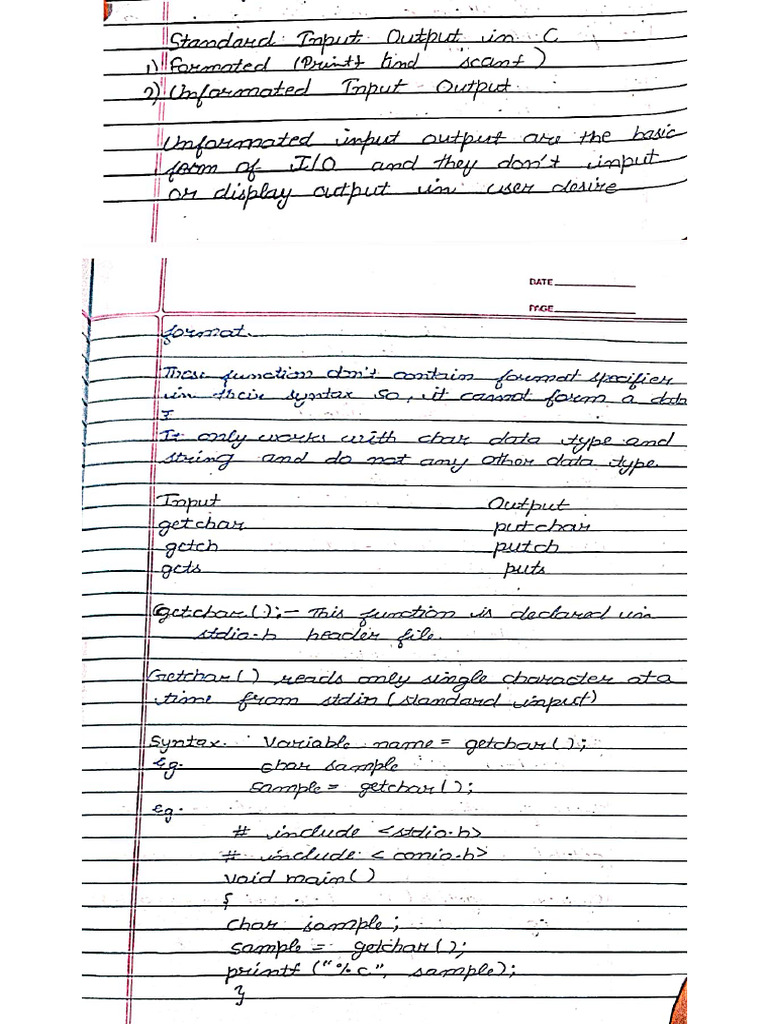 Standard Input Output in C
1) Formated (Printf and scanf)
2) Unformated Input Output
Unformated input output are the basic
form of I/O and they don't input
or display output in user desire
DATE
PAGE
format.
These function don't contain format specifier
in their syntax so, it cannot form a data
I
It only works with char data type and
string and do not any other data type.
Input Output
getchar putchar
getch putch
gets puts
Getchar();- This function is declared in
stdio.h header file.
Getchar() reads only single character at a
time from stdin (standard input)
Syntax. Variable name = getchar();
Eg. Char sample
sample = getchar();
Eg.
# include <stdio.h>
# include <conio.h>
void main()
{
char sample;
sample = getchar();
printf ("%c", sample);
}